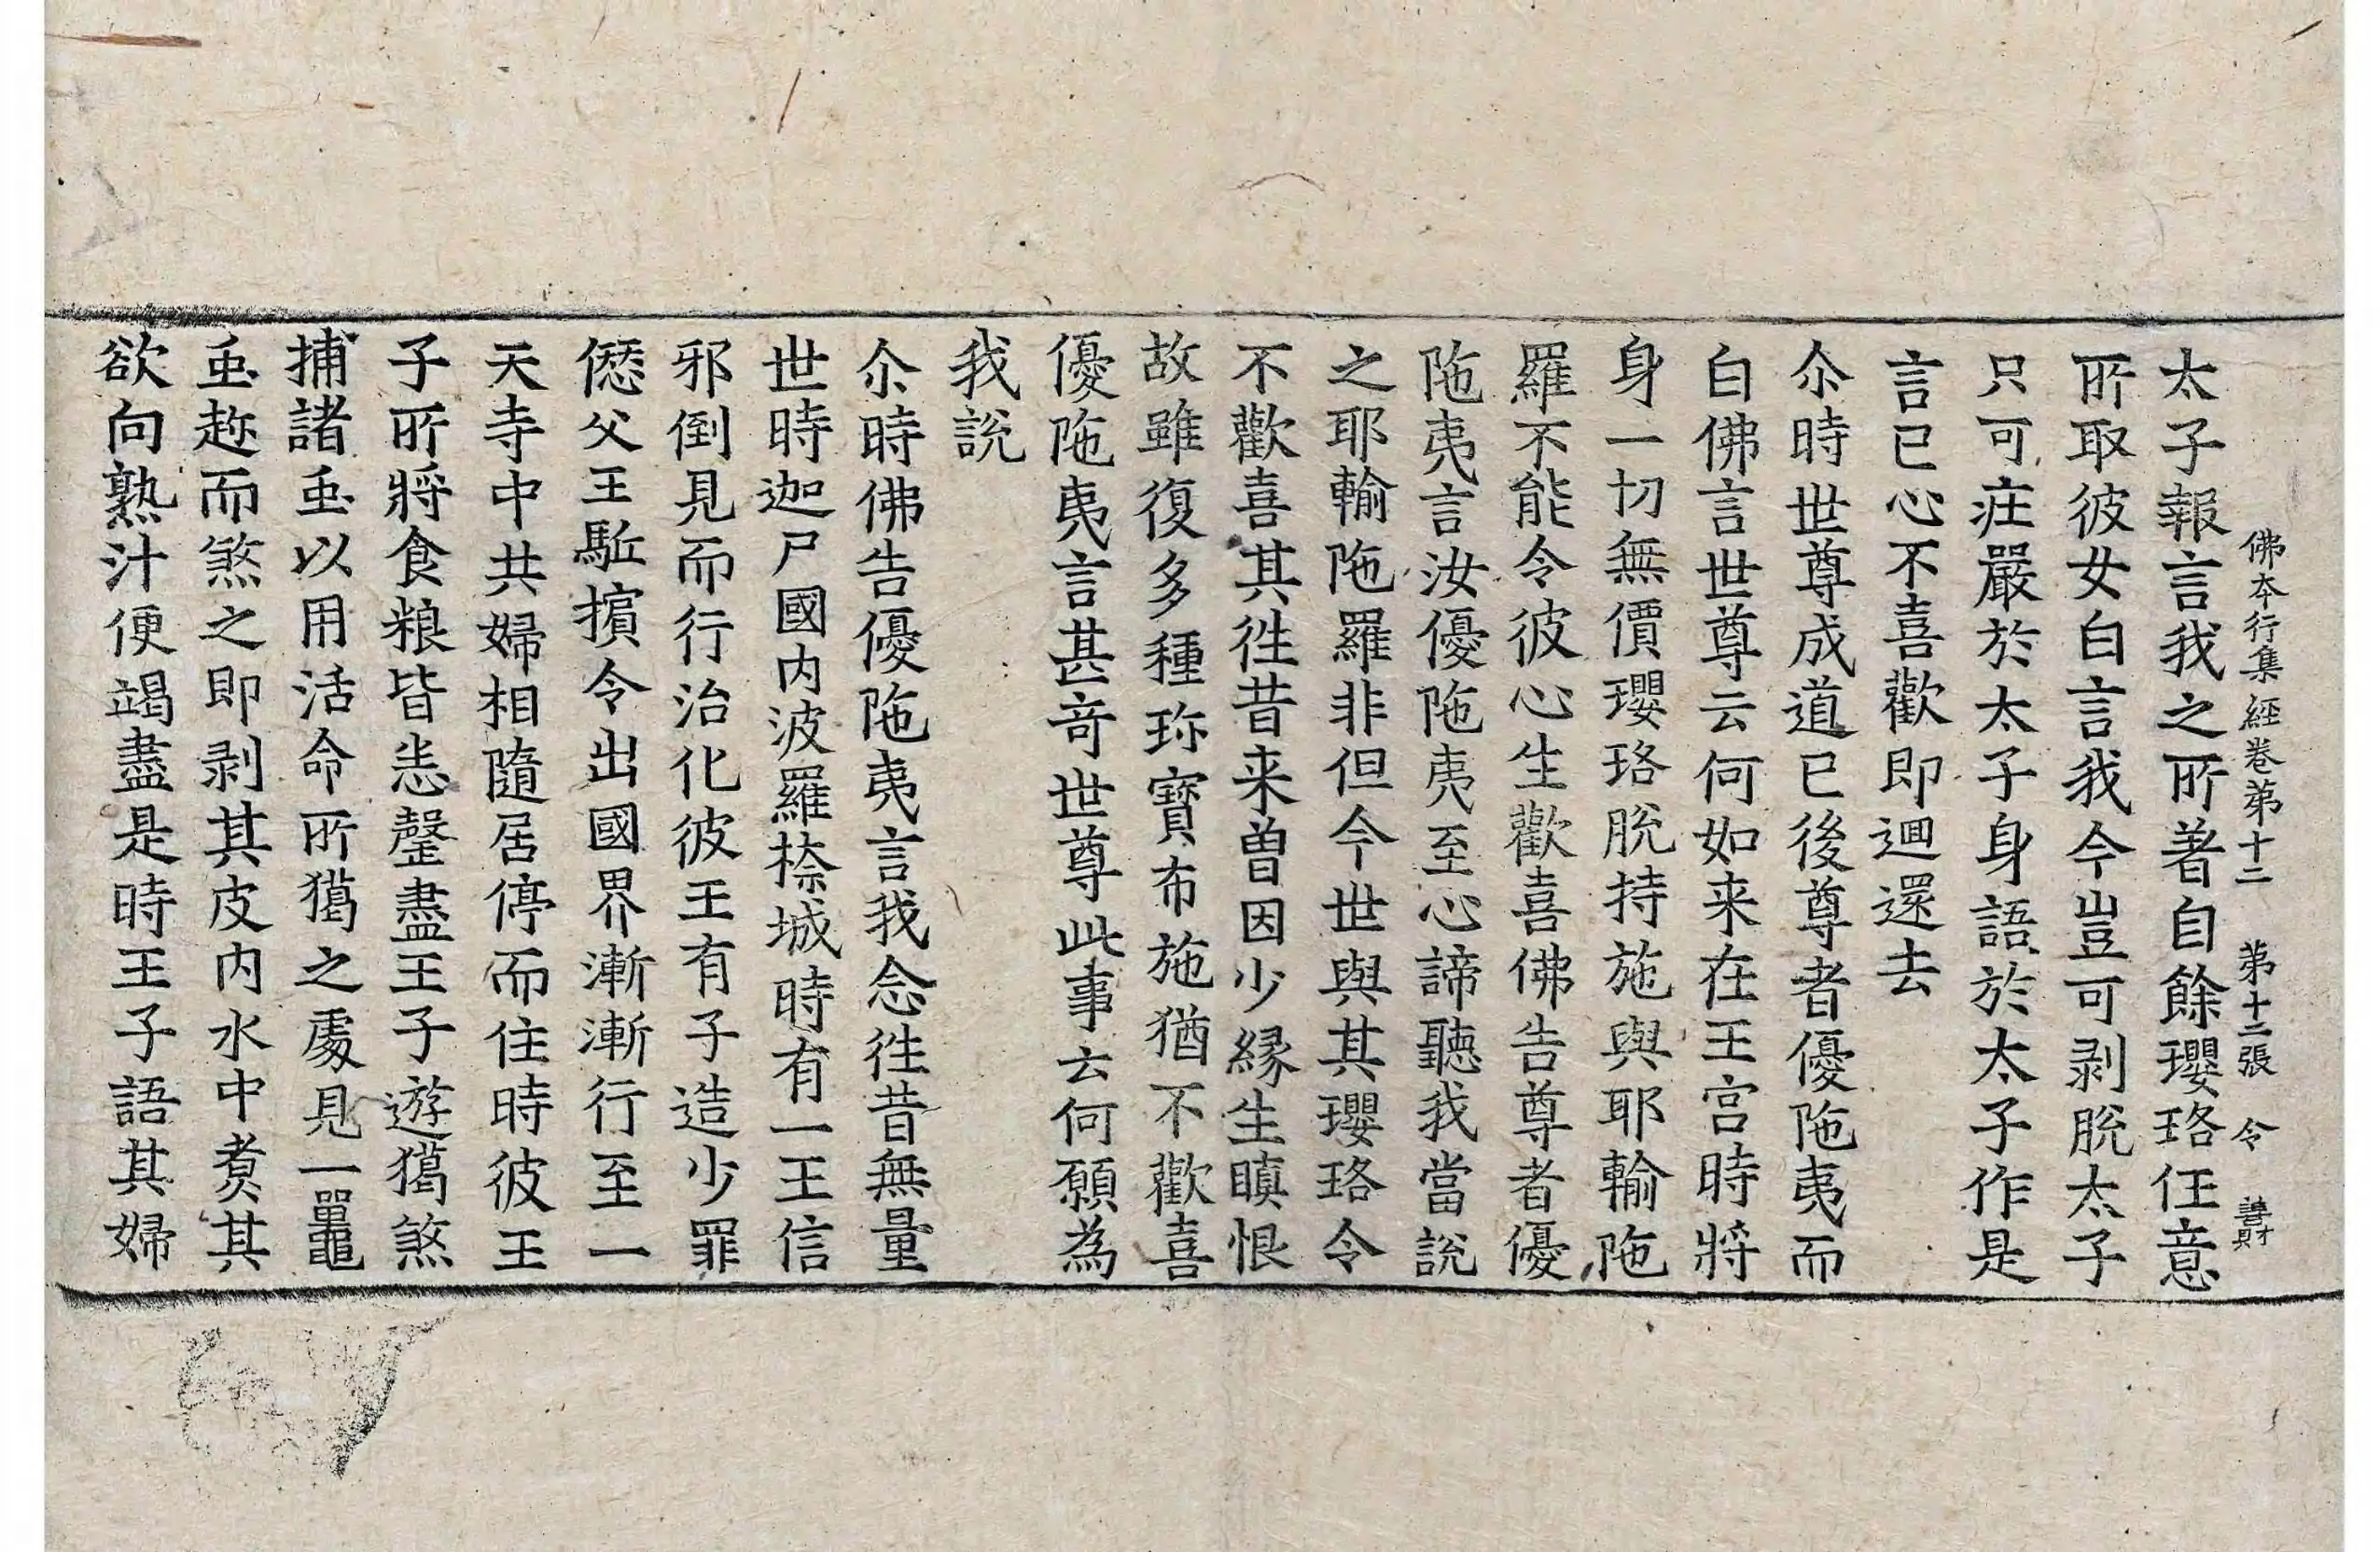 佛本行集經卷苐十二 苐十二張 令
太子報言我之所著自餘瓔珞任意
所取彼女白言我今豈可剥脫太子
只可庄嚴於太子身語於太子作是
言已心不喜歡即迴還去
尒時世尊成道已後尊者優陁夷而
白佛言世尊云何如来在王宫時將
身一切無價瓔珞脫持施與耶輸陁
羅不能令彼心生歡喜佛告尊者優
陁夷言汝優陁夷至心諦聽我當說
之耶輸陁羅非但今世與其瓔珞令
不歡喜其徃昔来曽因少緣生瞋恨
故雖復多種珎寶布施猶不歡喜
優陁夷言甚竒世尊此事云何願為
我說
尒時佛告優陁夷言我念徃昔無量
世時迦尸國内波羅㮈城時有一王信
邪倒見而行治化彼王有子造少罪
僽父王駈擯令出國界漸漸行至一
天寺中共婦相隨居停而住時彼王
子所將食粮皆悉罄盡王子遊獦煞
捕諸䖝以用活命所獦之處見一鼉
䖝趂而煞之即剥其皮内水中煑其
欲向熟汁便竭盡是時王子語其婦